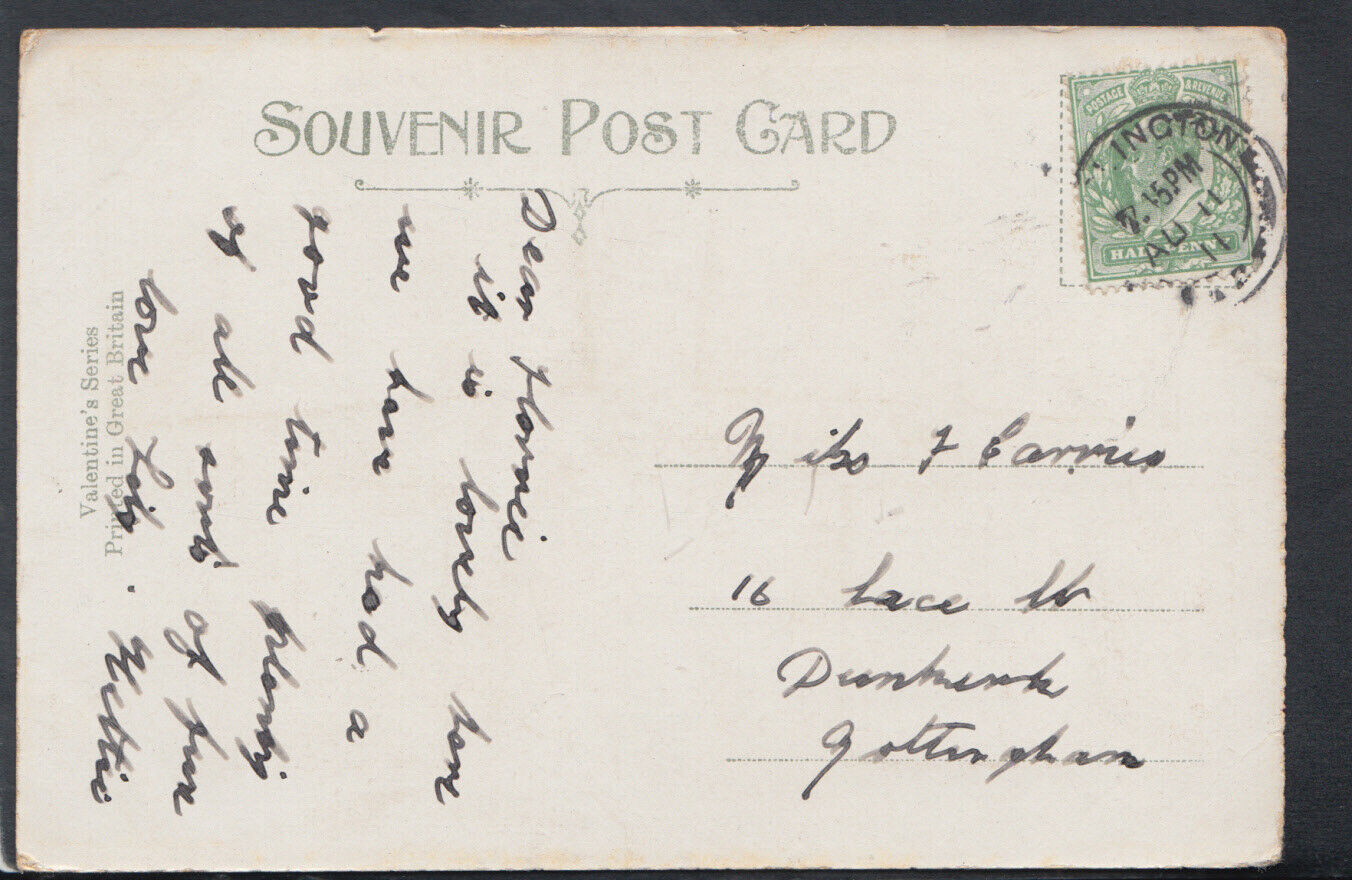 SOUVENIR POST CARD
POSTAGE & REVENUE
LINGTON
7.15PM
AU 11
11
HALFPENNY
Valentine's Series
Printed in Great Britain
Dear Florrie
it is lovely here
we have had a
good time plenty
of all sorts of fun
love Lily. Nettie
Miss F Carvis
16 Lace St
Dunkirk
Nottingham